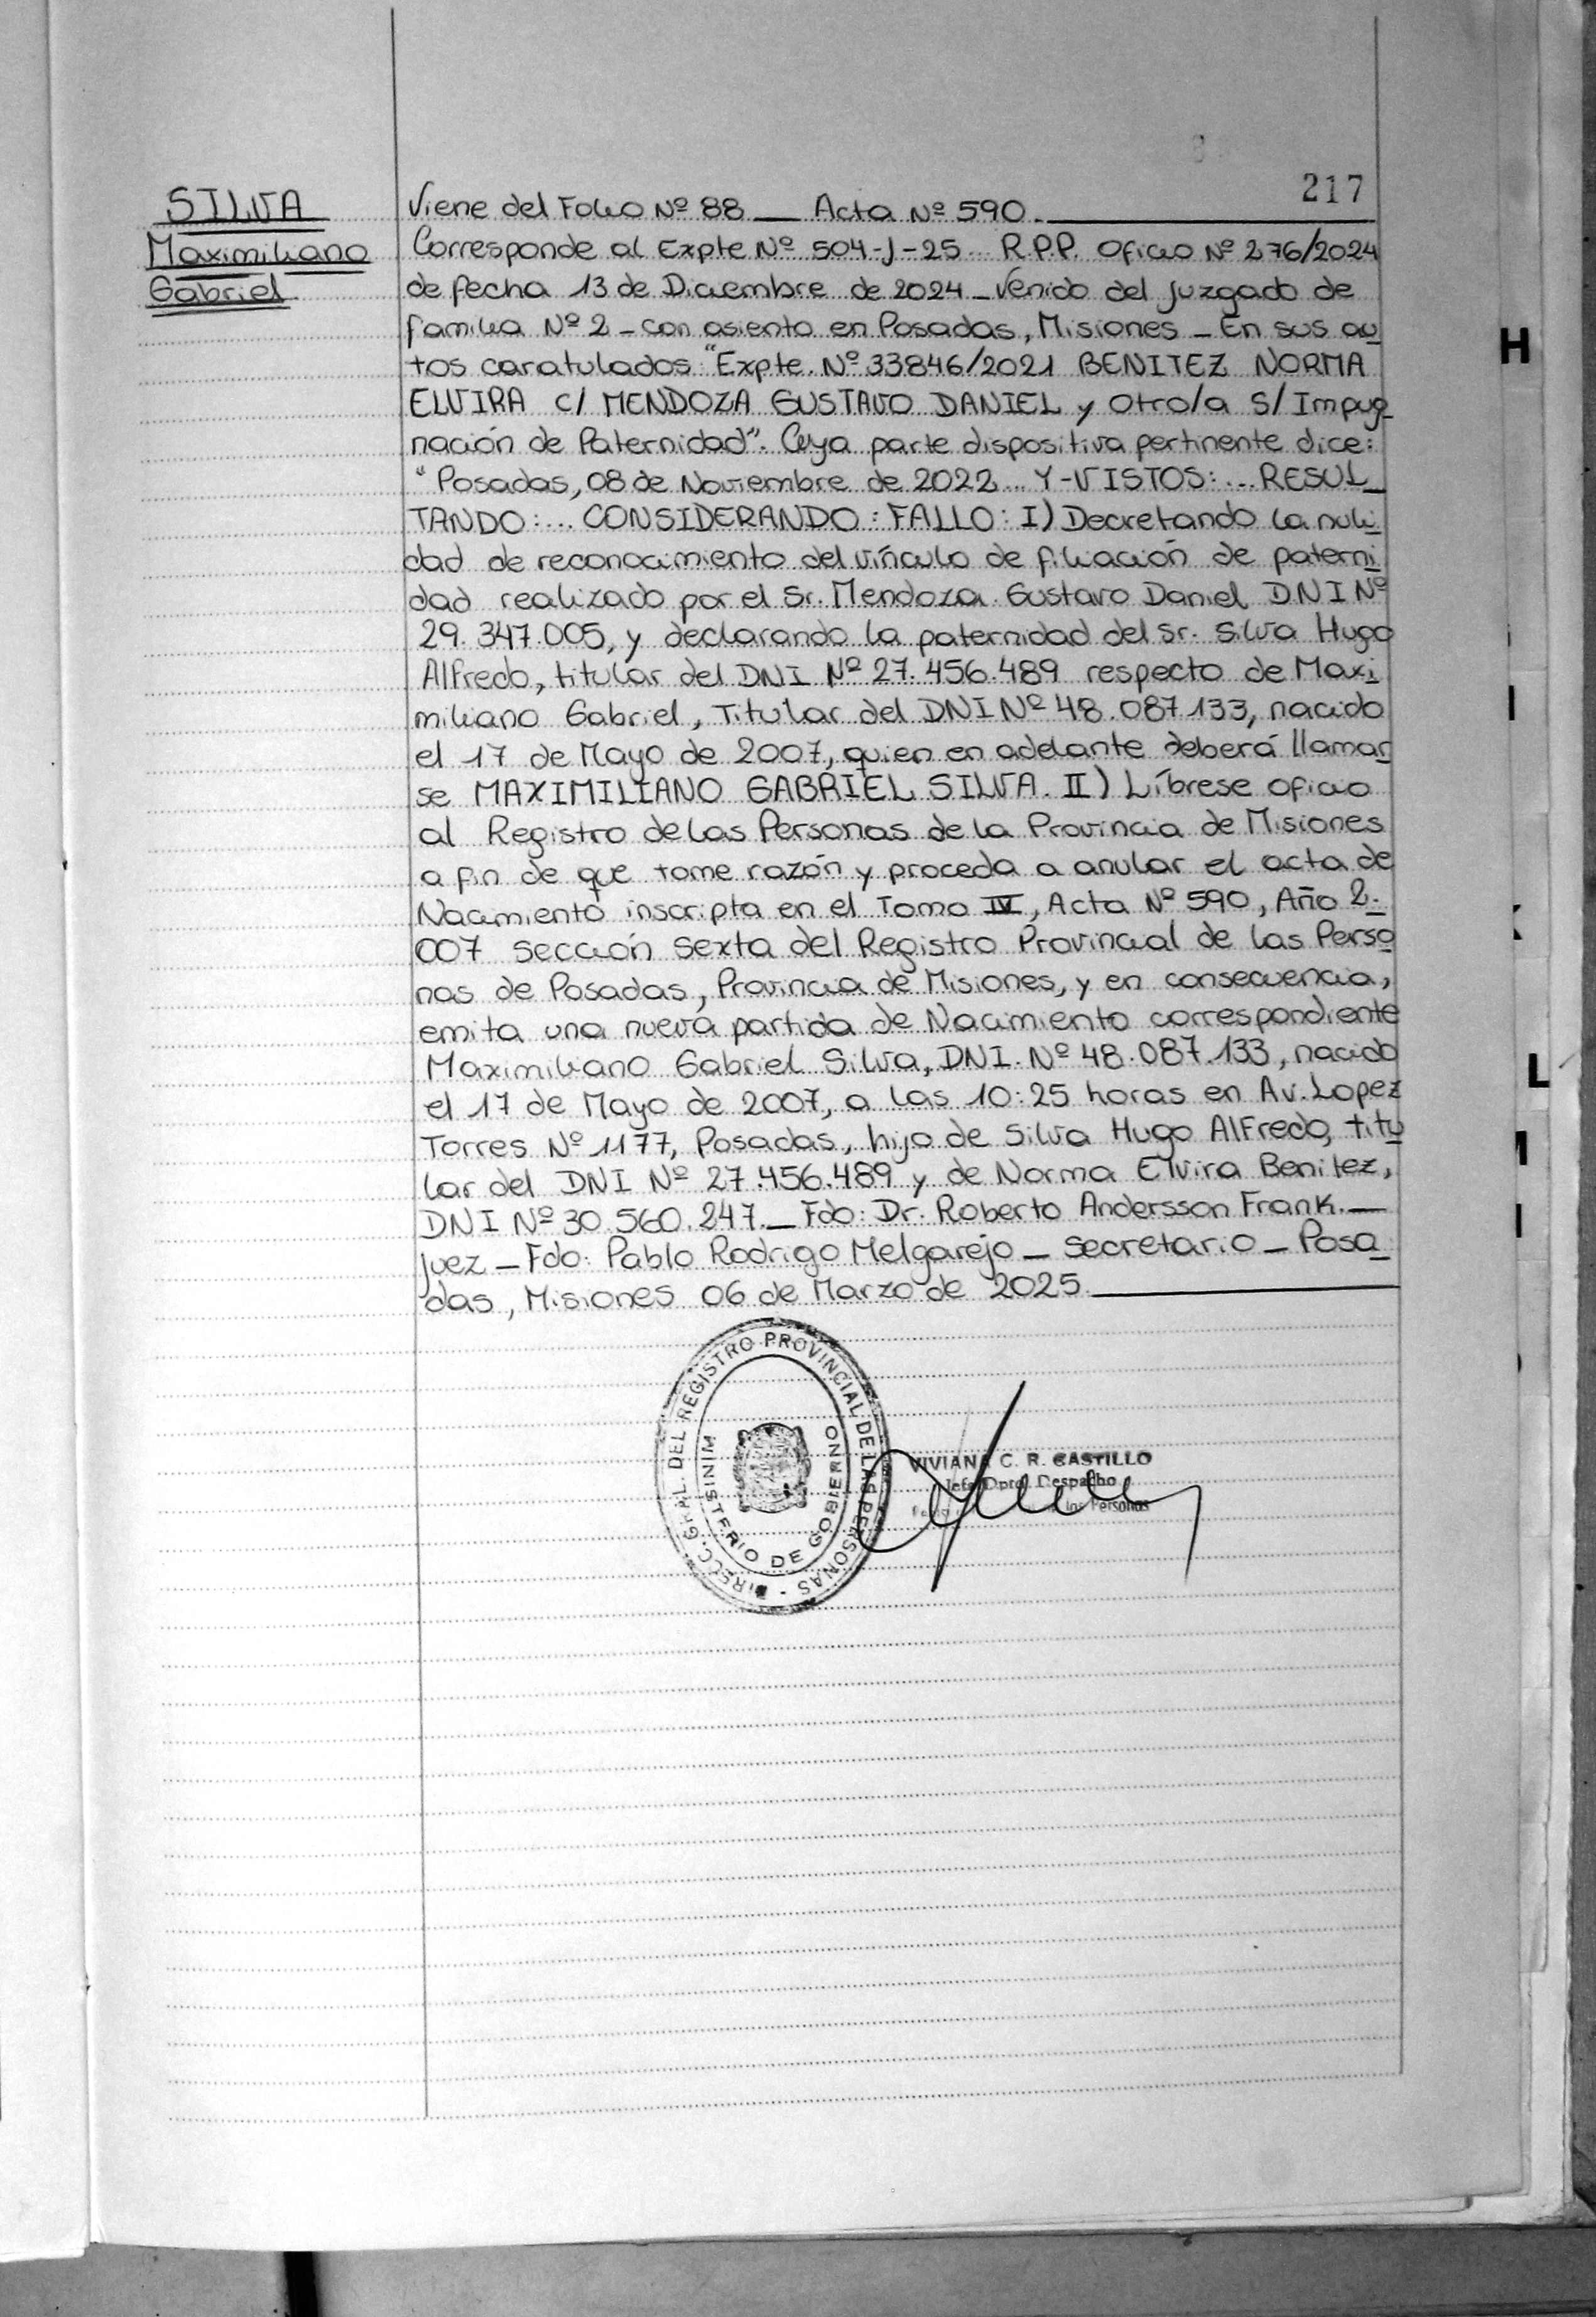 217
SILVA
Maximiliano
Gabriel
Viene del Folio Nº 88 — Acta Nº 590.
Corresponde al Expte Nº 504-J-25... R.P.P. Oficio Nº 276/2024
de fecha 13 de Diciembre de 2024 - Venido del Juzgado de
familia Nº 2 - con asiento en Posadas, Misiones - En sus au
tos caratulados "Expte. Nº 33846/2021 BENITEZ NORMA
ELVIRA C/ MENDOZA GUSTAVO DANIEL y Otro/a S/ Impug
nación de Paternidad". Cuya parte dispositiva pertinente dice:
"Posadas, 08 de Noviembre de 2022... Y-VISTOS:... RESUL
TANDO:... CONSIDERANDO: FALLO: I) Decretando la nuli
dad de reconocimiento del vínculo de filiación de paterni
dad realizado por el Sr. Mendoza Gustavo Daniel DNI Nº
29.347.005, y declarando la paternidad del Sr. Silva Hugo
Alfredo, titular del DNI Nº 27.456.489 respecto de Maxi
miliano Gabriel, Titular del DNI Nº 48.087.133, nacido
el 17 de Mayo de 2007, quien en adelante deberá llamar
se MAXIMILIANO GABRIEL SILVA. II) Líbrese oficio
al Registro de las Personas de la Provincia de Misiones
a fin de que tome razón y proceda a anular el acta de
Nacimiento inscripta en el Tomo IV, Acta Nº 590, Año 2-
007 sección sexta del Registro Provincial de las Perso
nas de Posadas, Provincia de Misiones, y en consecuencia,
emita una nueva partida de Nacimiento correspondiente
Maximiliano Gabriel Silva, DNI. Nº 48.087.133, nacido
el 17 de Mayo de 2007, a las 10:25 horas en Av. Lopez
Torres Nº 1177, Posadas, hijo de Silva Hugo Alfredo, titu
lar del DNI Nº 27.456.489 y de Norma Elvira Benitez,
DNI Nº 30.560.247. — Fdo: Dr. Roberto Andersson Frank. —
Juez - Fdo: Pablo Rodrigo Melgarejo - Secretario - Posa
das, Misiones 06 de Marzo de 2025.
DIRECC. GRAL. DEL REGISTRO PROVINCIAL DE LAS PERSONAS -
MINISTERIO DE GOBIERNO
VIVIANA C. R. CASTILLO
Jefe Dpto. Despacho
las Personas
H
L